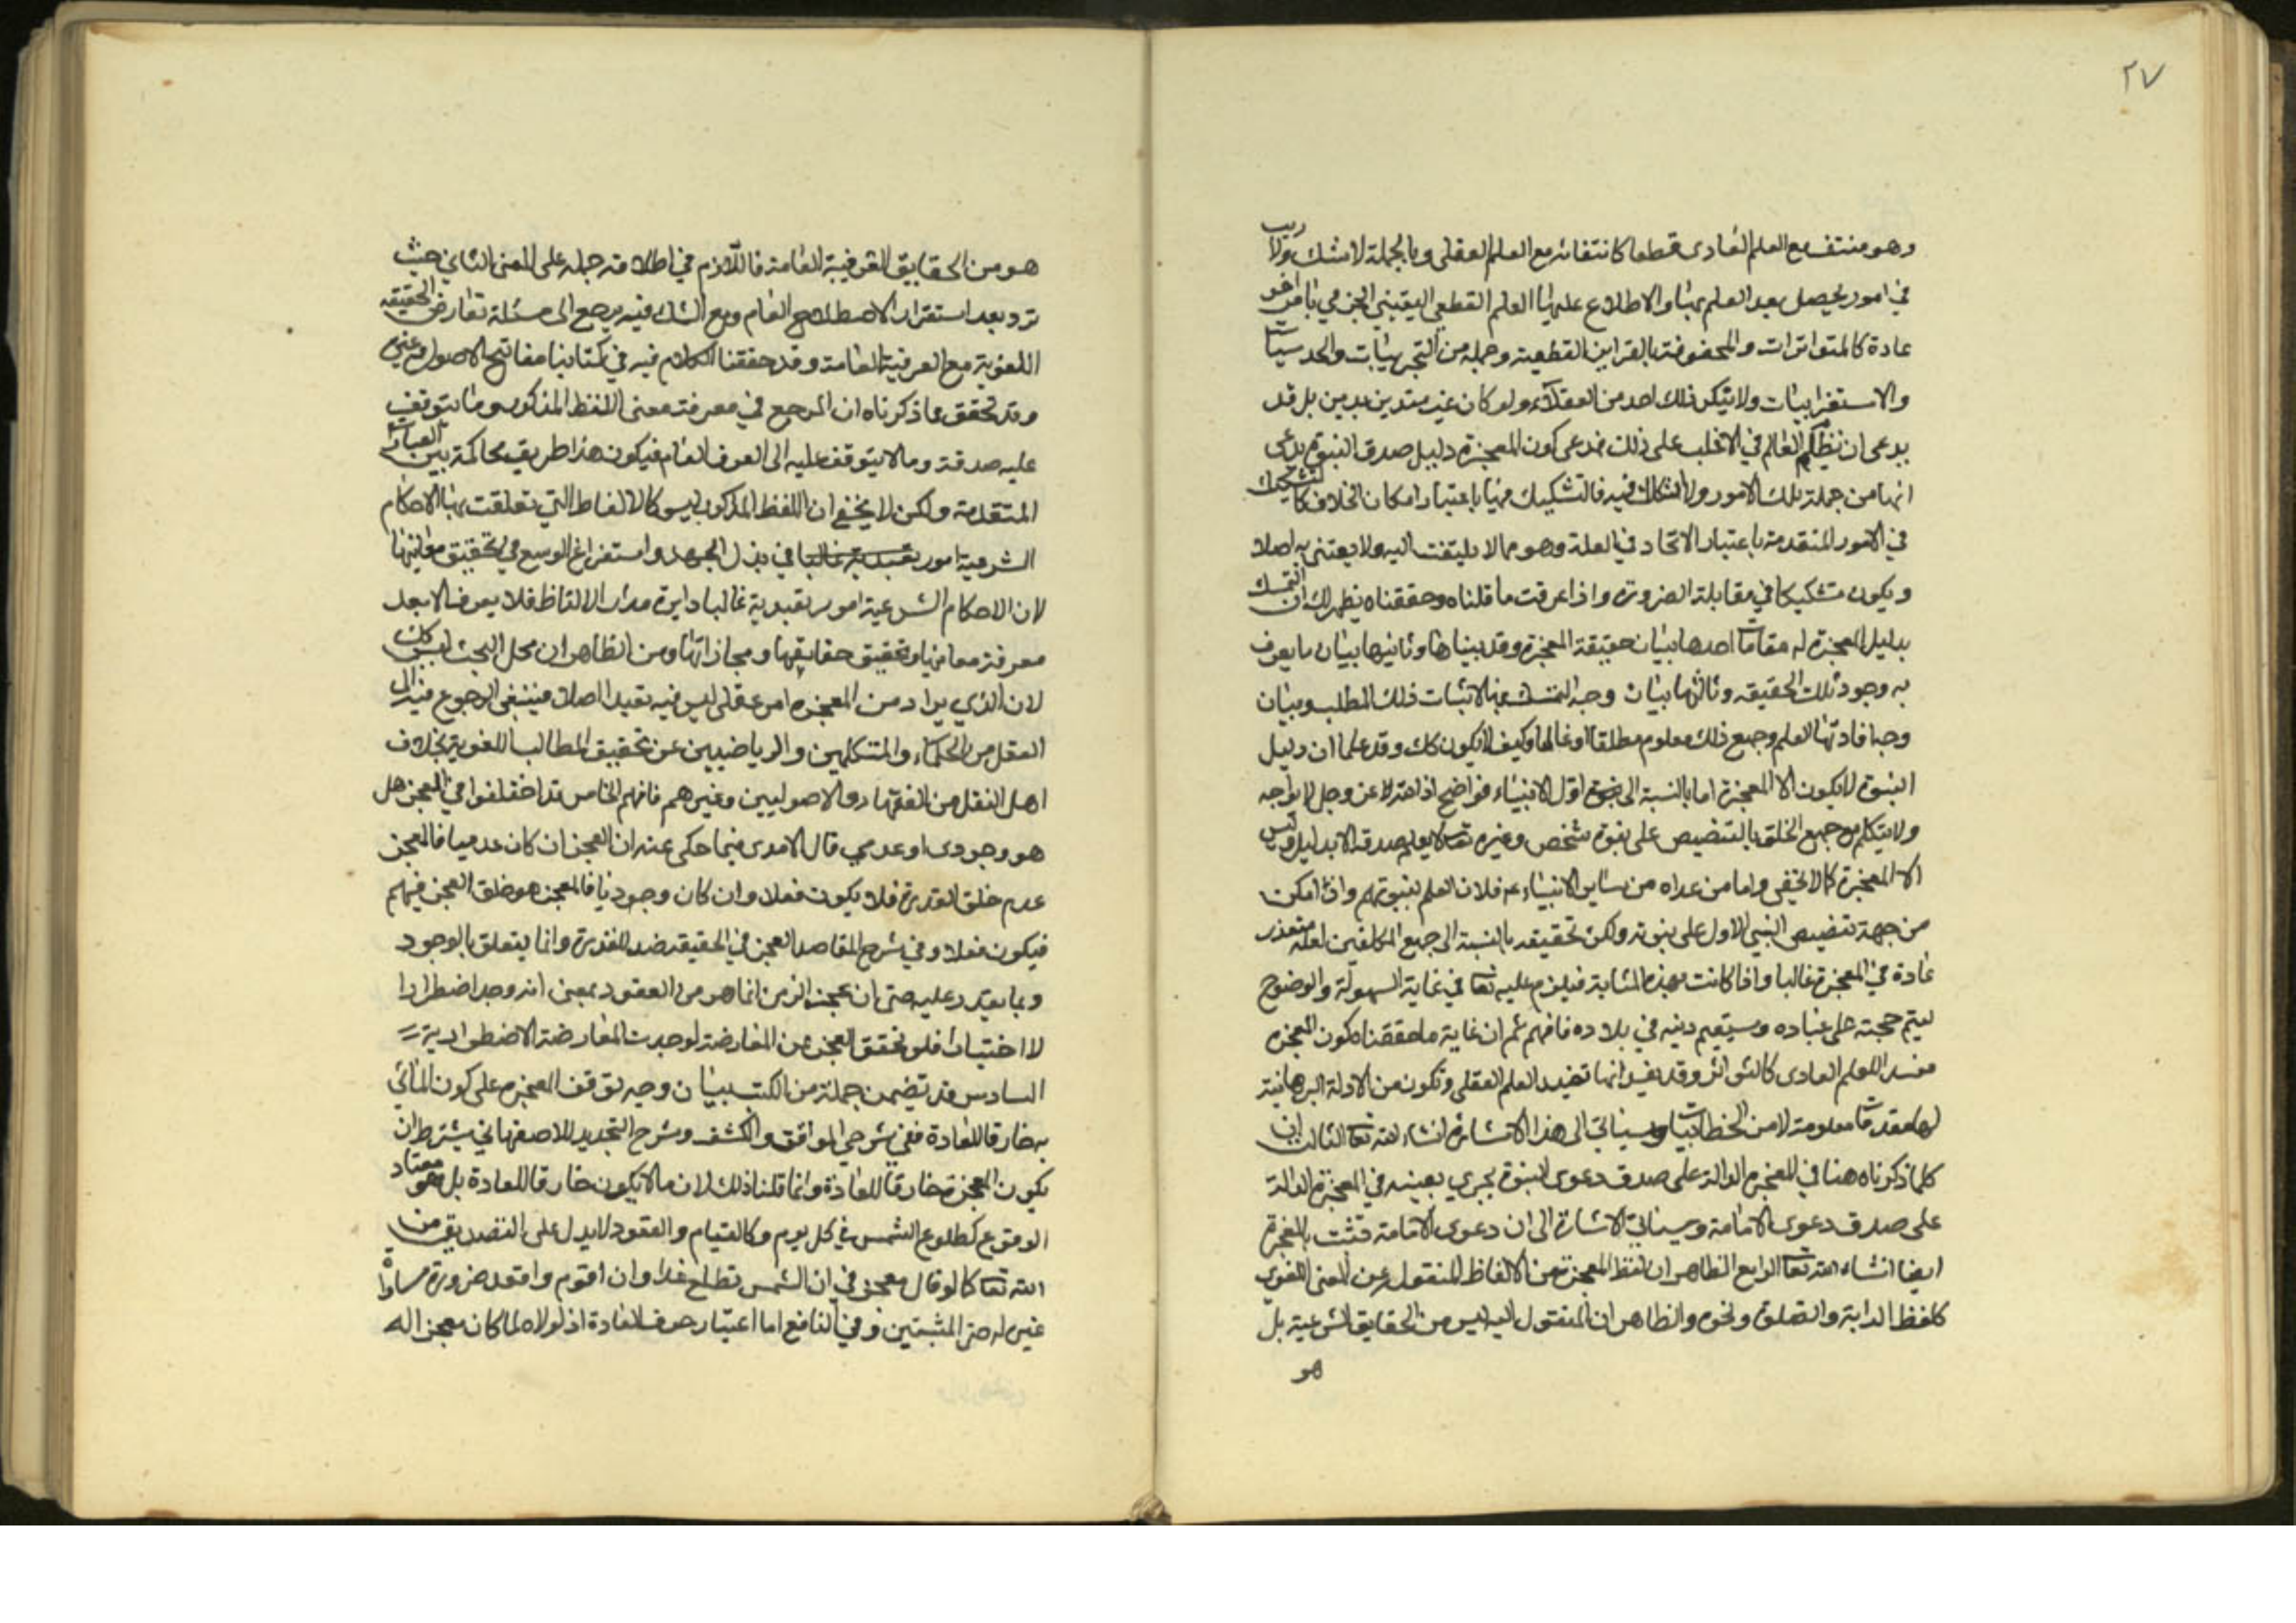 ٢٧
وهو منتف مع العلم العادى قطعا كانتفائه مع العلم العقلى وبالجملة لا شك ولا ريب
في امور يحصل بعد العلم بها والاطلاع عليها العلم القطعي اليقيني الجزمي بامر اخر
عادة كالمتواترات والمحفوفة بالقراين القطعية وجملة من التجربيات والحدسيات
والاستقرابيات ولا ينكر ذلك احد من العقلاء ولو كان غير متدين بدين بل قد
يدعى ان نظم العالم في الاغلب على ذلك فمدعى كون المعجزة دليل صدق النبوة يدعى
انها من جملة تلك الامور ولا اشكال فيه فالتشكيك فيها باعتبار امكان الخلاف كالتشكيك
في الامور المتقدمة باعتبار الاتحاد في العلة وهو مما لا يلتفت اليه ولا يعتنى به اصلا
ويكون تشكيكا في مقابلة الضرورة واذا عرفت ما قلناه وحققناه يظهر لك ان التمسك
بدليل المعجزة له مقامات احدها بيان حقيقة المعجزة وقد بيناها وثانيها بيان ما يعرف
به وجود تلك الحقيقه وثالثها بيان وجه التمسك بها لاثبات ذلك المطلب وبيان
وجه افادتها العلم وجميع ذلك معلوم مطلقا او غالبا وكيف لا يكون كك وقد علما ان دليل
النبوة لا يكون الا المعجزة اما بالنسبة الى نبوة اول الانبياء فواضح اذ الله عز وجل لا يواجه
ولا يتكلم مع جميع الخلق بالتنصيص على نبوة شخص وغيره تعالى لا يعلم صدقه الا بدليل وليس
الا المعجزة كما لا يخفى واما من عداه من ساير الانبياء ع فلان العلم بنبوتهم وان امكن
من جهة تنصيص النبي الاول على نبوته ولكن تحقيقه بالنسبة الى جميع المكلفين لعله متعذر
عادة في المعجزة غالبا واذا كانت بهذه المثابة فيلزم عليه تعا في غاية السهولة والوضوح
ليتم حجته على عباده ويستقيم دينه في بلاده فافهم ثم ان غاية ما حققناه كون المعجزه
مفسدا للعلم العادى كالتواتر وقد يقيد انها تفيد العلم العقلى وتكون من الادلة البرهانية
لها مقدمات معلومة لا من الخطابيات وسياتي الى هذا الاشارة انشاء لله تعا الثالث ان
كلما ذكرناه هنا في المعجزه الدالة على صدق دعوى النبوة يجري بعينه في المعجزة الدالة
على صدق دعوى الامامة وسياتي الاشارة الى ان دعوى الامامة تثبت بالمعجزة
ايضا انشاء الله تعا الرابع الظاهر ان لفظ المعجزة من الالفاظ المنقولة عن المعنى اللغوى
كلفظ الدابة والصلوة ونحوه والظاهر ان المنقول اليه ليس من الحقايق الشرعية بل
هو
هو من الحقايق العرفية العامة فاللازم في اطلاقه حمله على المعنى الثاني حيث
ترد بعد استقرار الاصطلاح العام ومع الشك فيه يرجع الى مسئلة تعارض الحقيقه
اللغوية مع العرفية العامة وقد حققنا الكلام فيه في كتابنا مفاتيح الاصول وغيره
وقد تحقق مما ذكرناه ان المرجع في معرفة معنى اللفظ المذكور وما يتوقف
عليه صدقه وما لا يتوقف عليه الى العرف العام فيكون هذا طريق محاكمة بين العبارات
المتقدمة ولكن لا يخفى ان اللفظ المذكور ليس كالالفاظ التي تعلقت بها الاحكام
الشرعية امور تعبدية غالبا في بذل الجهد واستفراغ الوسع في تحقيق معانيها
لان الاحكام الشرعية امور تعبدية غالبا دايرة مدار الالفاظ فلا يعرف الا بعد
معرفة معانيها وتحقيق حقايقها ومجازاتها ومن الظاهر ان محل البحث ليس كك
لان الذي يراد من المعجزه امر عقلى ليس فيه تعبد اصلا فينبغي الرجوع فيه الى
العقل من الحكماء والمتكلمين والرياضيين عن تحقيق المطالب اللغوية بخلاف
اهل النقل من الفقهاء والاصوليين وغيرهم فافهم الخامس قد اختلفوا في العجز هل
هو وجودى او عدمي قال الامدى فيما حكى عنه ان العجز ان كان عدميا فالمعجز
عدم خلق القدرة فلا يكون فعلا وان كان وجوديا فالمعجز هو خلق العجز فيهم
فيكون فعلا وفي شرح المقاصد العجز في الحقيقه ضد للقدرة وانما يتعلق بالوجود
وبما يقدر عليه حتى ان عجز الزمن انما هو من القعود بمعنى انه وجد اضطرارا
لا اختيارا فلو تحقق العجز عن المعارضة لوجدت المعارضة الاضطرارية
السادس قد تضمن جملة من الكتب بيان وجه توقف المعجزه على كون الماتي
به خارقا للعادة ففي شرحي المواقف والكشف وشرح التجريد للاصفهاني يشترط ان
يكون المعجزة خارقا للعادة وانما قلنا ذلك لان ما لا يكون خارقا للعادة بل هو معتاد
الوقوع كطلوع الشمس في كل يوم وكالقيام والقعود لا يدل على التصديق من
الله تعا كما لو قال معجزتي ان الشمس تطلع غدا وان اقوم واقعد ضرورة مساواة
غيره له حتى المثبتين وفي النافع اما اعتبار خرقه للعادة اذ لولاه لما كان معجزا له